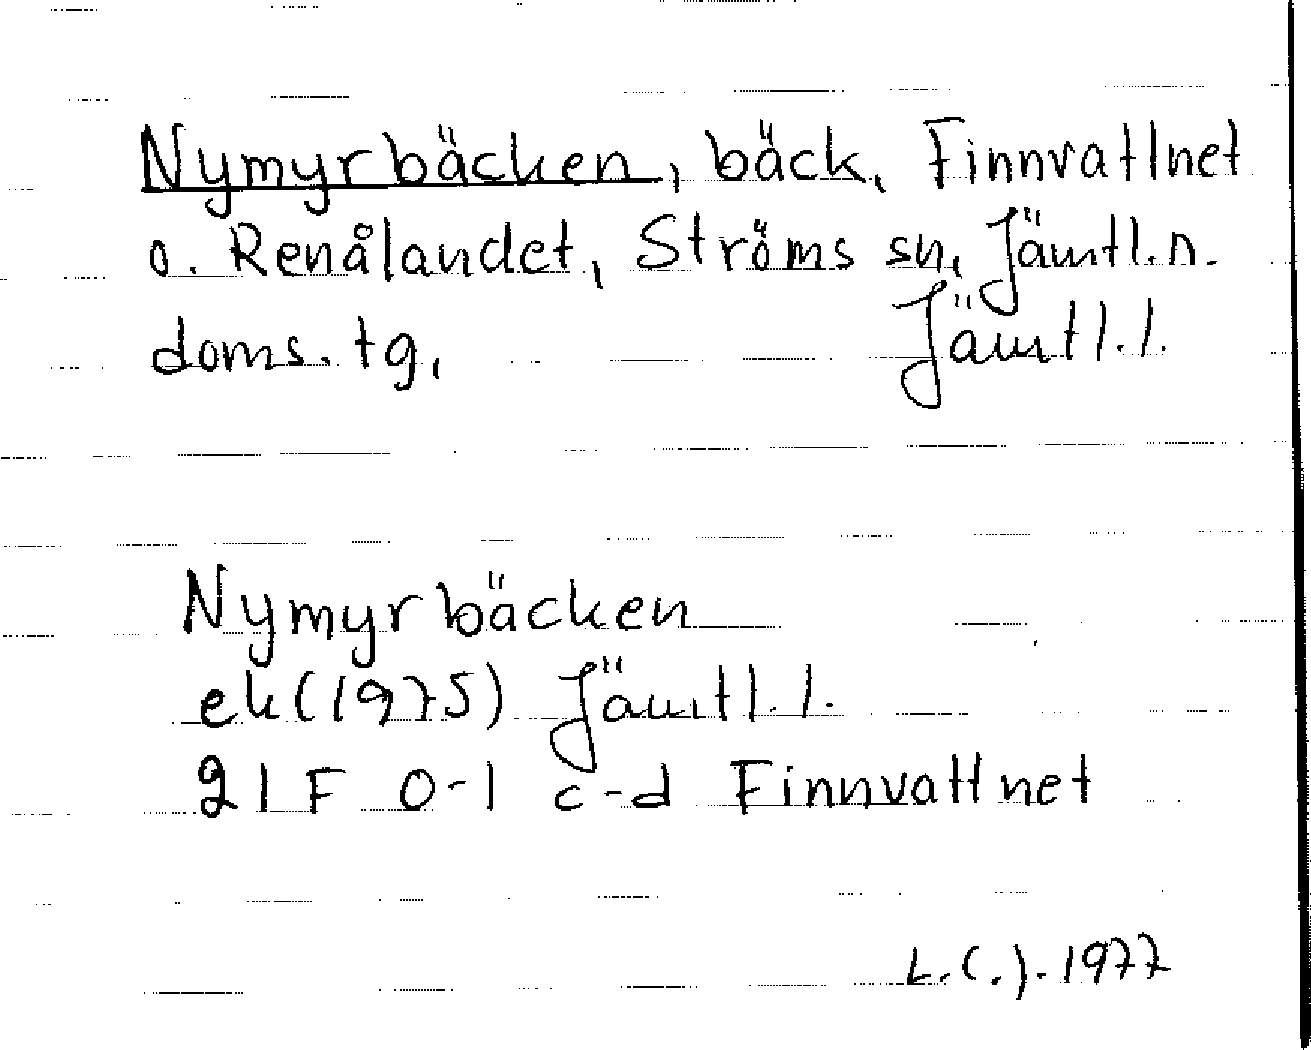 Nymyrbäcken, bäck, Finnvattnet
o. Renålandet, Ströms sn, Jämtl.n.
doms. tg, Jämtl.l.
Nymyrbäcken
ek(1975) Jämtl.l.
21F 0-1 c-d Finnvattnet
L.C.J. 1977